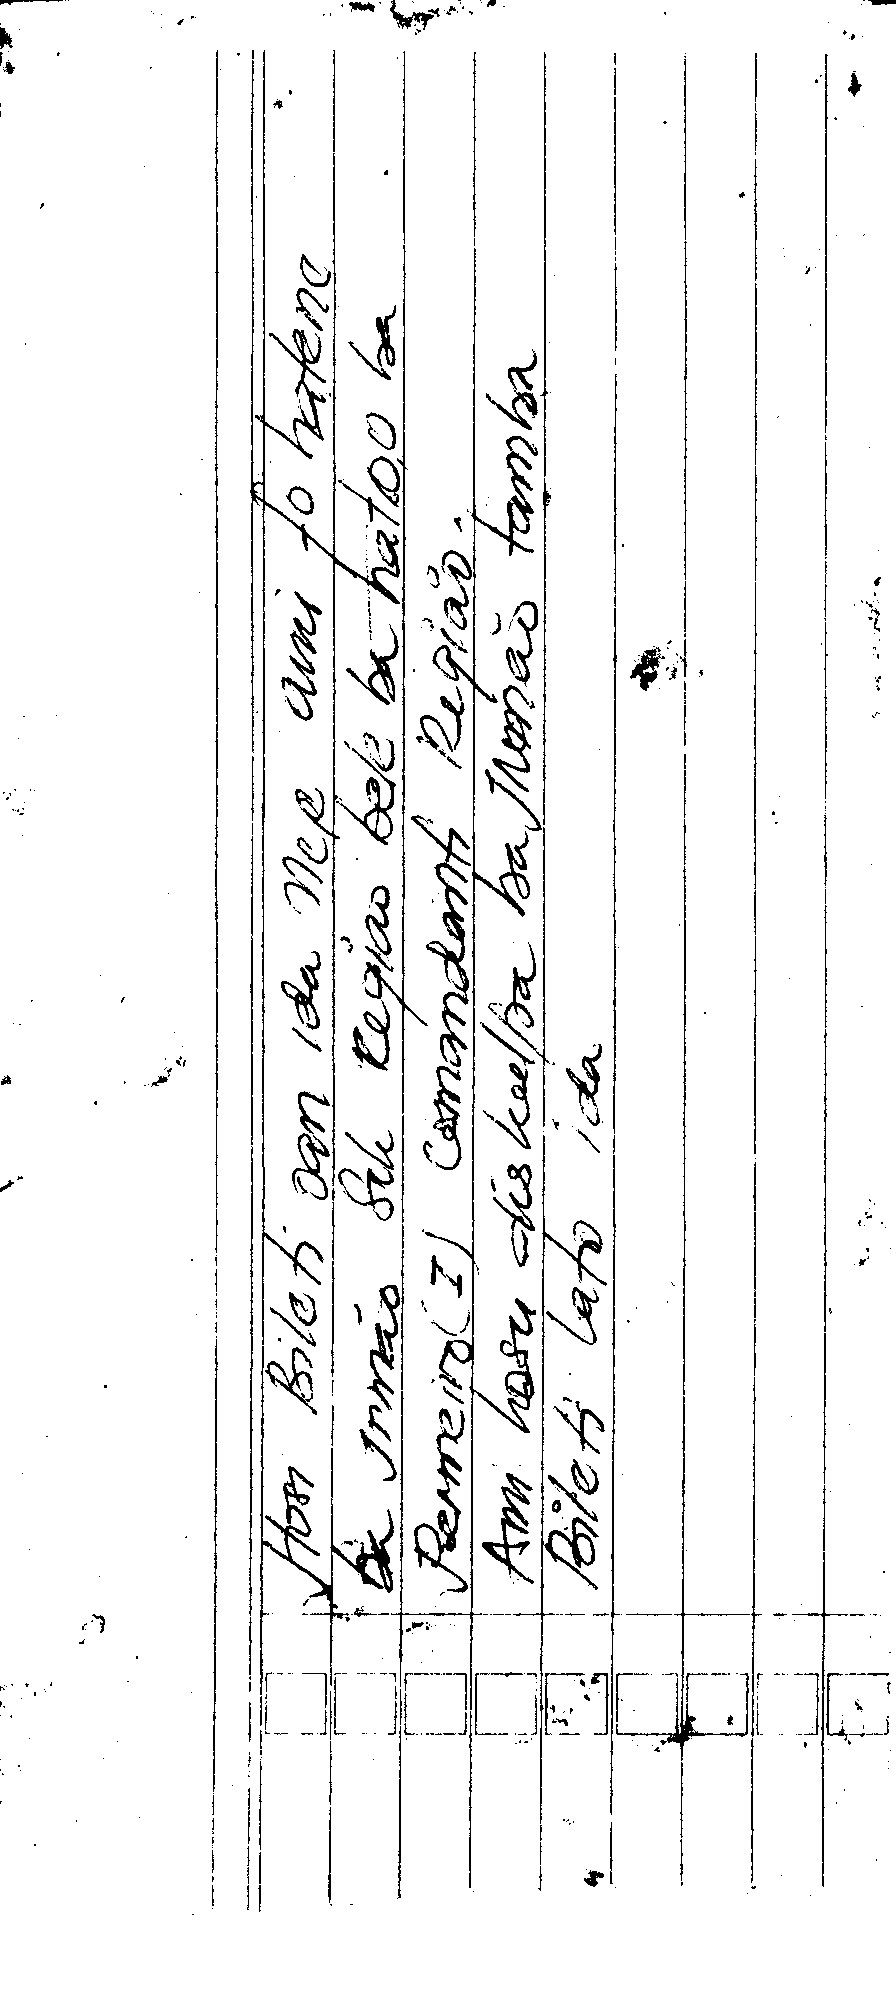 Hosi Bileti oan ida Nee ami fo hatene
ba Irmão Sek Região bele ba hato,o ba
Premeiro (I) Comandanti Região.
Ami husu diskoelpa ba Irmão tamba
Bileti lato ida